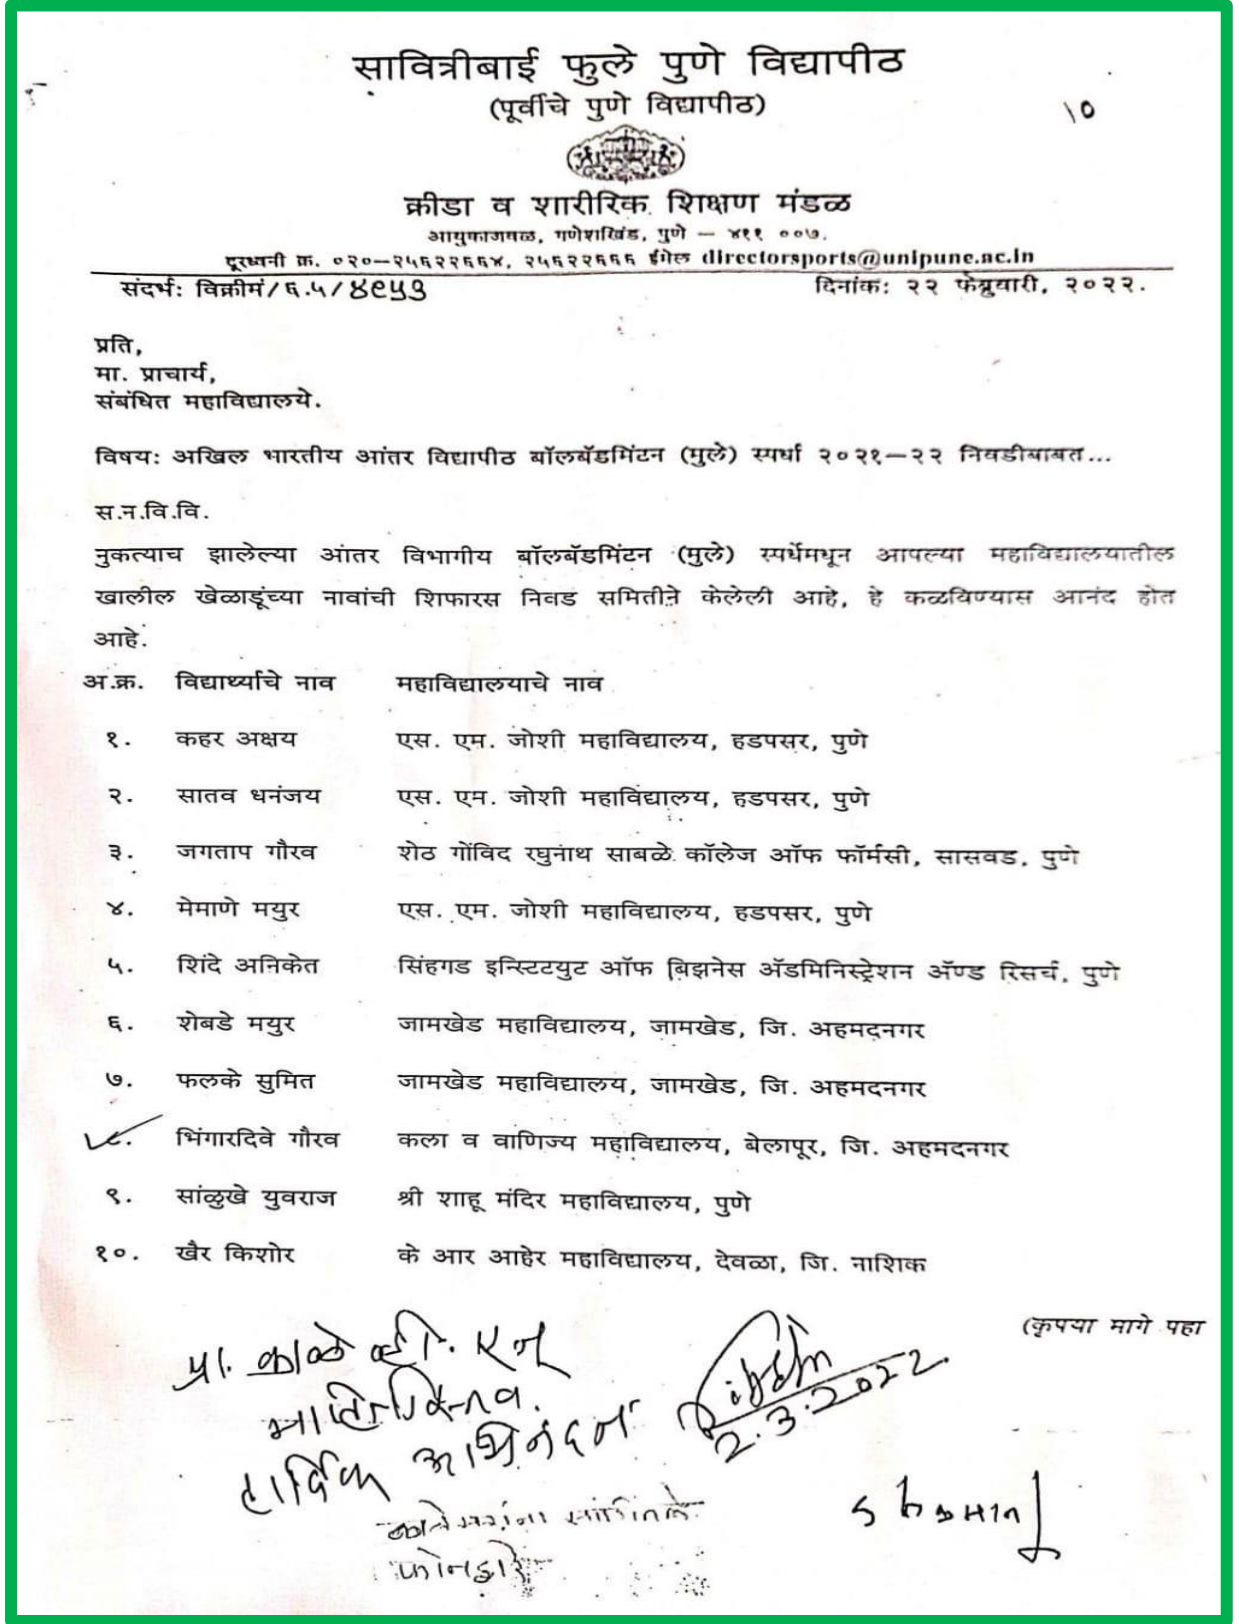 सावित्रीबाई फुले पुणे विद्यापीठ
(पूर्वीचे पुणे विद्यापीठ)
१०
क्रीडा व शारीरिक शिक्षण मंडळ
आयुकाजवळ, गणेशखिंड, पुणे – ४११ ००७.
दूरध्वनी क्र. ०२०–२५६२२६६४, २५६२२६६६ ईमेल directorsports@unipune.ac.in
संदर्भः विक्रीमं/६.५/४९५३ दिनांकः २२ फेब्रुवारी, २०२२.
प्रति,
मा. प्राचार्य,
संबंधित महाविद्यालये.
विषयः अखिल भारतीय आंतर विद्यापीठ बॉलबॅडमिंटन (मुले) स्पर्धा २०२१–२२ निवडीबाबत...
स.न.वि.वि.
नुकत्याच झालेल्या आंतर विभागीय बॉलबॅडमिंटन (मुले) स्पर्धेमधून आपल्या महाविद्यालयातील
खालील खेळाडूंच्या नावांची शिफारस निवड समितीने केलेली आहे, हे कळविण्यास आनंद होत
आहे.
अ.क्र. विद्यार्थ्याचे नाव महाविद्यालयाचे नाव
१. कहर अक्षय एस. एम. जोशी महाविद्यालय, हडपसर, पुणे
२. सातव धनंजय एस. एम. जोशी महाविद्यालय, हडपसर, पुणे
३. जगताप गौरव शेठ गोंविद रघुनाथ साबळे कॉलेज ऑफ फॉर्मसी, सासवड, पुणे
४. मेमाणे मयुर एस. एम. जोशी महाविद्यालय, हडपसर, पुणे
५. शिंदे अनिकेत सिंहगड इन्स्टिटयुट ऑफ बिझनेस ॲडमिनिस्ट्रेशन ॲण्ड रिसर्च, पुणे
६. शेबडे मयुर जामखेड महाविद्यालय, जामखेड, जि. अहमदनगर
७. फलके सुमित जामखेड महाविद्यालय, जामखेड, जि. अहमदनगर
८. भिंगारदिवे गौरव कला व वाणिज्य महाविद्यालय, बेलापूर, जि. अहमदनगर
९. सांळुखे युवराज श्री शाहू मंदिर महाविद्यालय, पुणे
१०. खैर किशोर के आर आहेर महाविद्यालय, देवळा, जि. नाशिक
(कृपया मागे पहा
प्रा. काळे व्ही. एन्
माहितीस्तव.
हार्दिक अभिनंदन
2.3.2022
फोनद्वारे